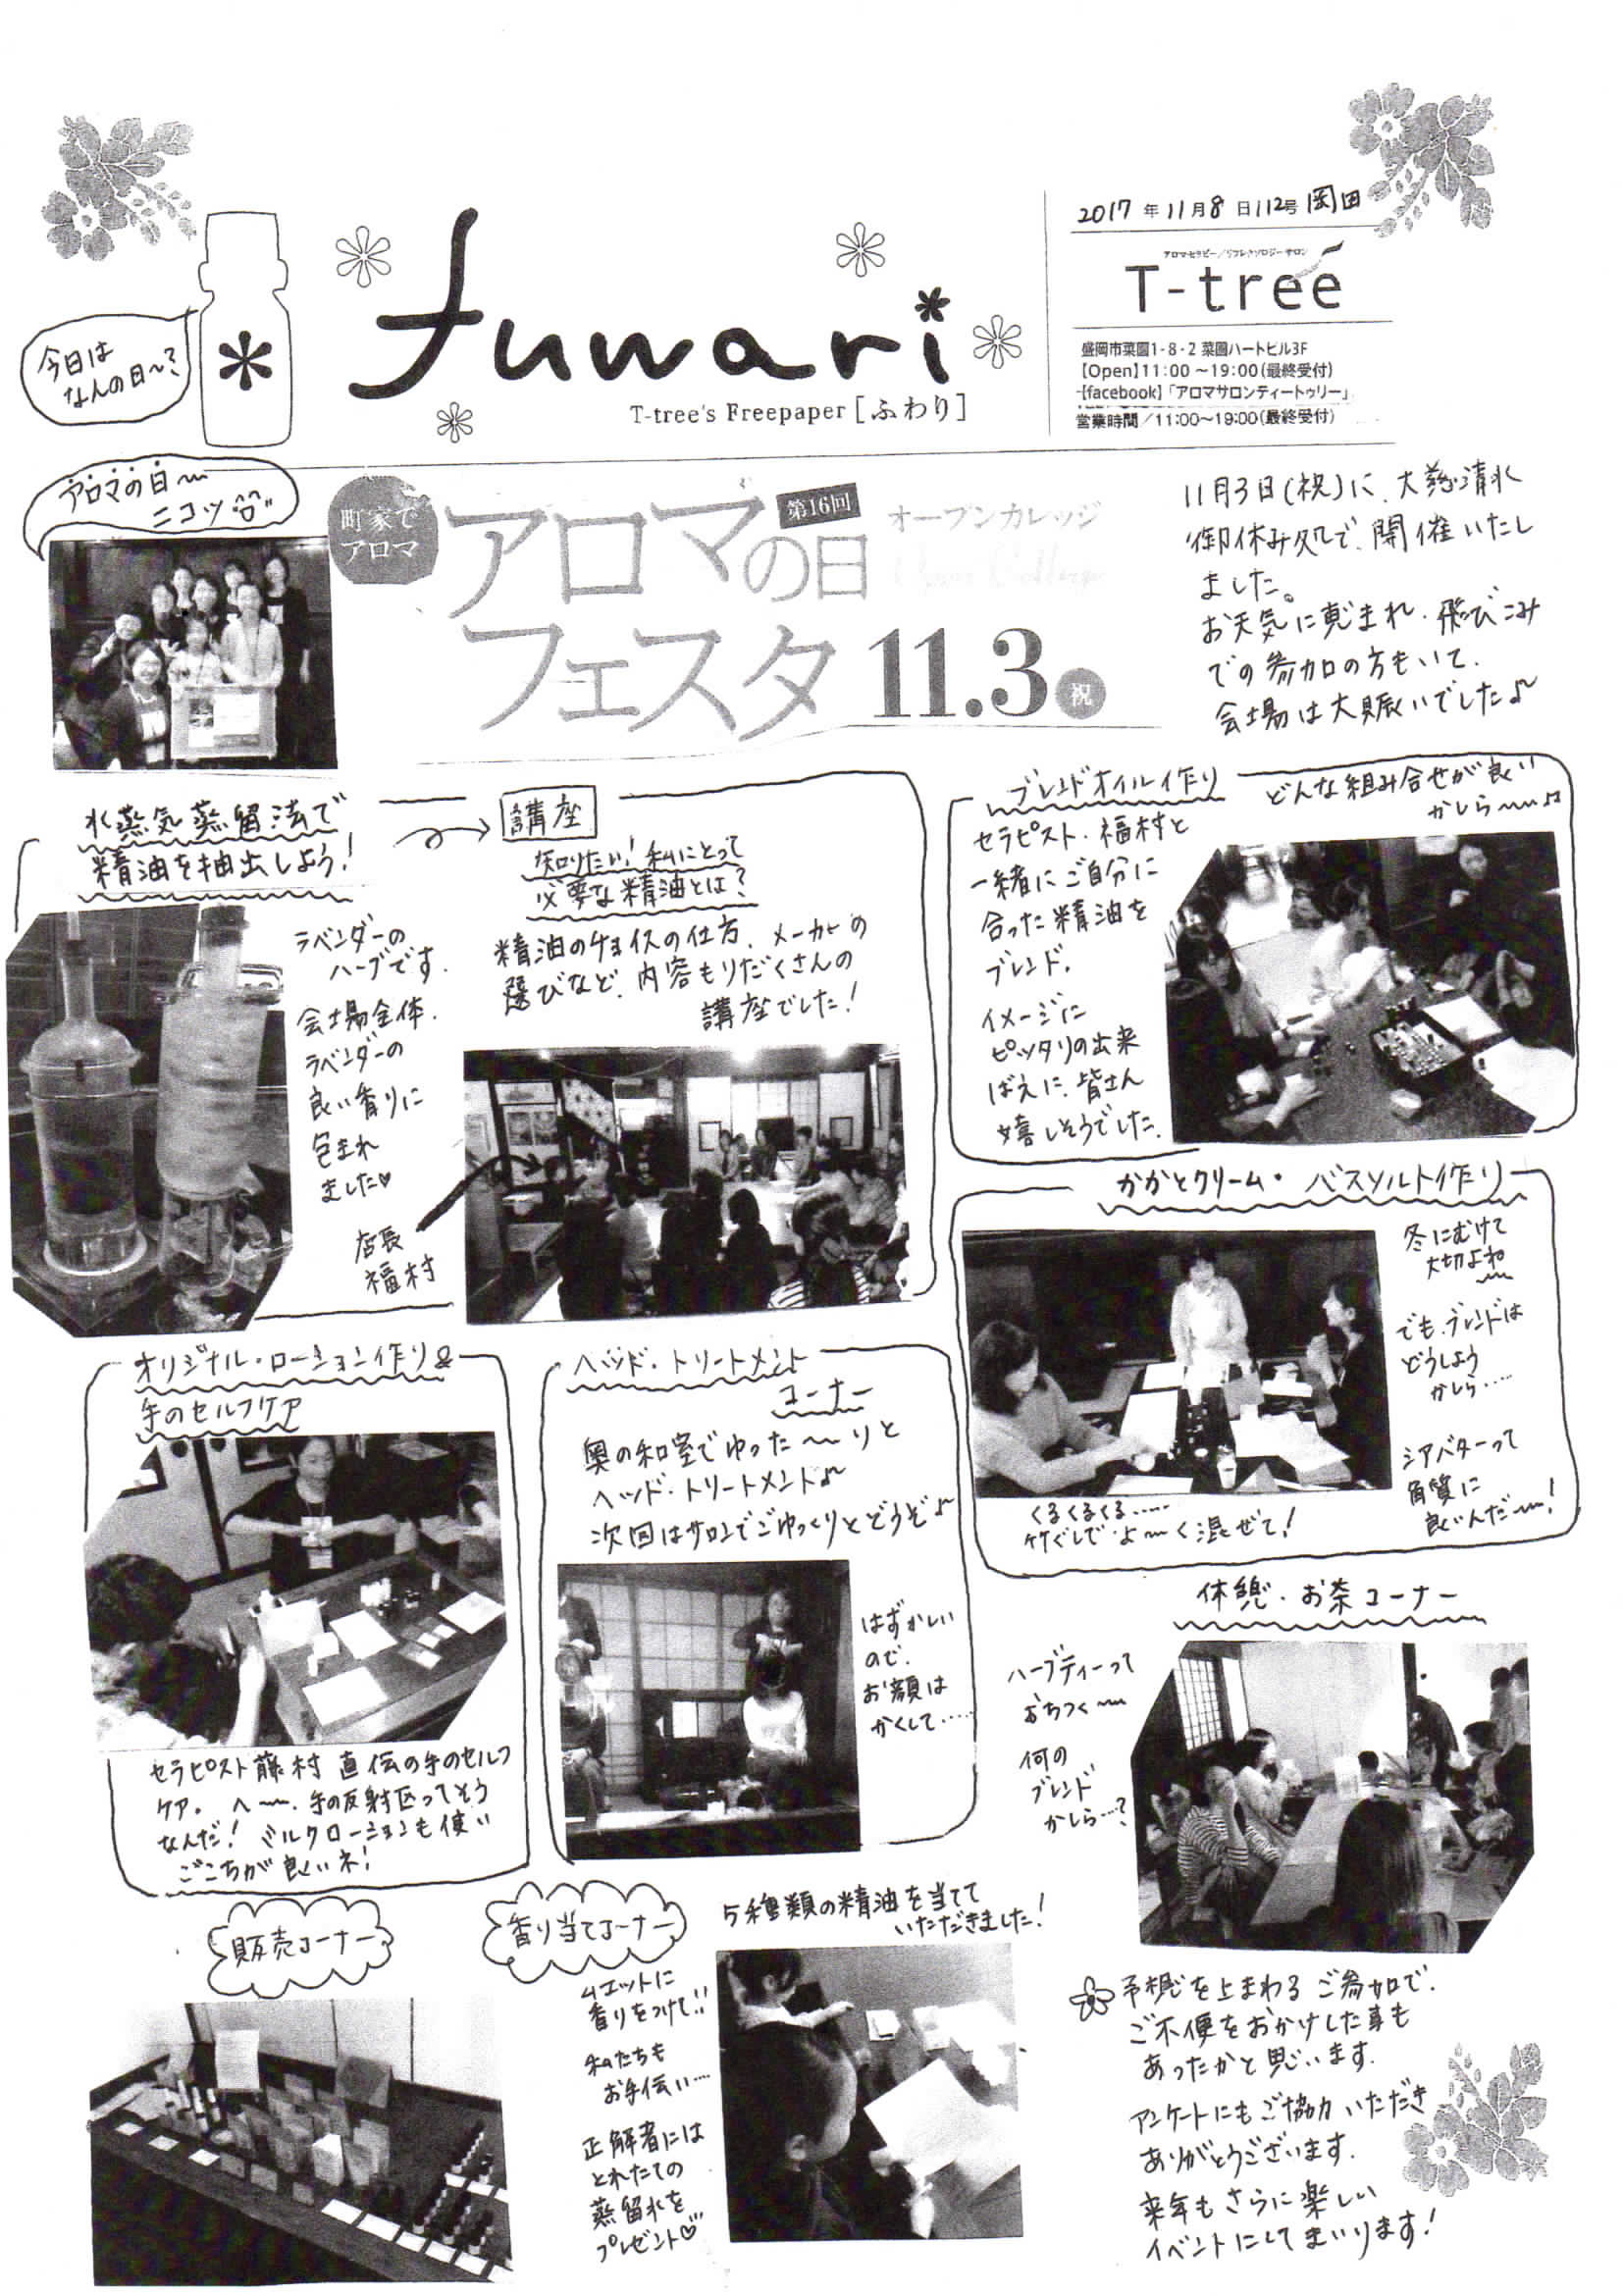 2017年11月8日112号 岡田
アロマセラピー／リフレクソロジーサロン
T-tree
盛岡市菜園1-8-2 菜園ハートビル3F
【Open】11:00～19:00(最終受付)
【facebook】「アロマサロンティートゥリー」
営業時間／11:00～19:00(最終受付)
今日は
なんの日～?
fuwari
T-tree's Freepaper [ふわり]
アロマの日〜
ニコッ
町家で
アロマ
アロマの日
第16回
オープンカレッジ
Open College
フェスタ 11.3 祝
11月3日(祝)に、大慈清水
御休み処で、開催いたし
ました。
お天気に恵まれ、飛びこみ
での参加の方もいて、
会場は大賑いでした♪
水蒸気蒸留法で
精油を抽出しよう!
ラベンダーの
ハーブです。
会場全体、
ラベンダーの
良い香りに
包まれ
ました♡
店長
福村
講座
知りたい! 私にとって
必要な精油とは?
精油のチョイスの仕方、メーカーの
選びなど、内容もりだくさんの
講座でした!
ブレンドオイル作り
どんな組み合せが良い
かしら〜♫
セラピスト・福村と
一緒にご自分に
合った精油を
ブレンド。
イメージに
ピッタリの出来
ばえに、皆さん
嬉しそうでした。
かかとクリーム・バスソルト作り
冬にむけて
大切よね〜
でも、ブレンドは
どうしよう
かしら‥‥
シアバターって
角質に
良いんだ〜!
くるくるくる‥‥
竹ぐしでよ〜く混ぜて!
オリジナル・ローション作り&
手のセルフケア
セラピスト藤村 直伝の手のセルフ
ケア。 へ〜、手の反射区ってそう
なんだ! ミルクローションも使い
ごこちが良いネ!
ヘッド・トリートメント
コーナー
奥の和室でゆった〜りと
ヘッド・トリートメント♪
次回はサロンでごゆっくりとどうぞ♪
はずかしい
ので、
お顔は
かくして‥‥
休憩・お茶コーナー
ハーブティーって
おちつく〜
何の
ブレンド
かしら…?
販売コーナー
香り当てコーナー
5種類の精油を当てて
いただきました!
ムエットに
香りをつけて!!
私たちも
お手伝い…
正解者には
とれたての
蒸留水を
プレゼント♡
予想を上まわるご参加で、
ご不便をおかけした事も
あったかと思います。
アンケートにもご協力いただき
ありがとうございます。
来年もさらに楽しい
イベントにしてまいります!